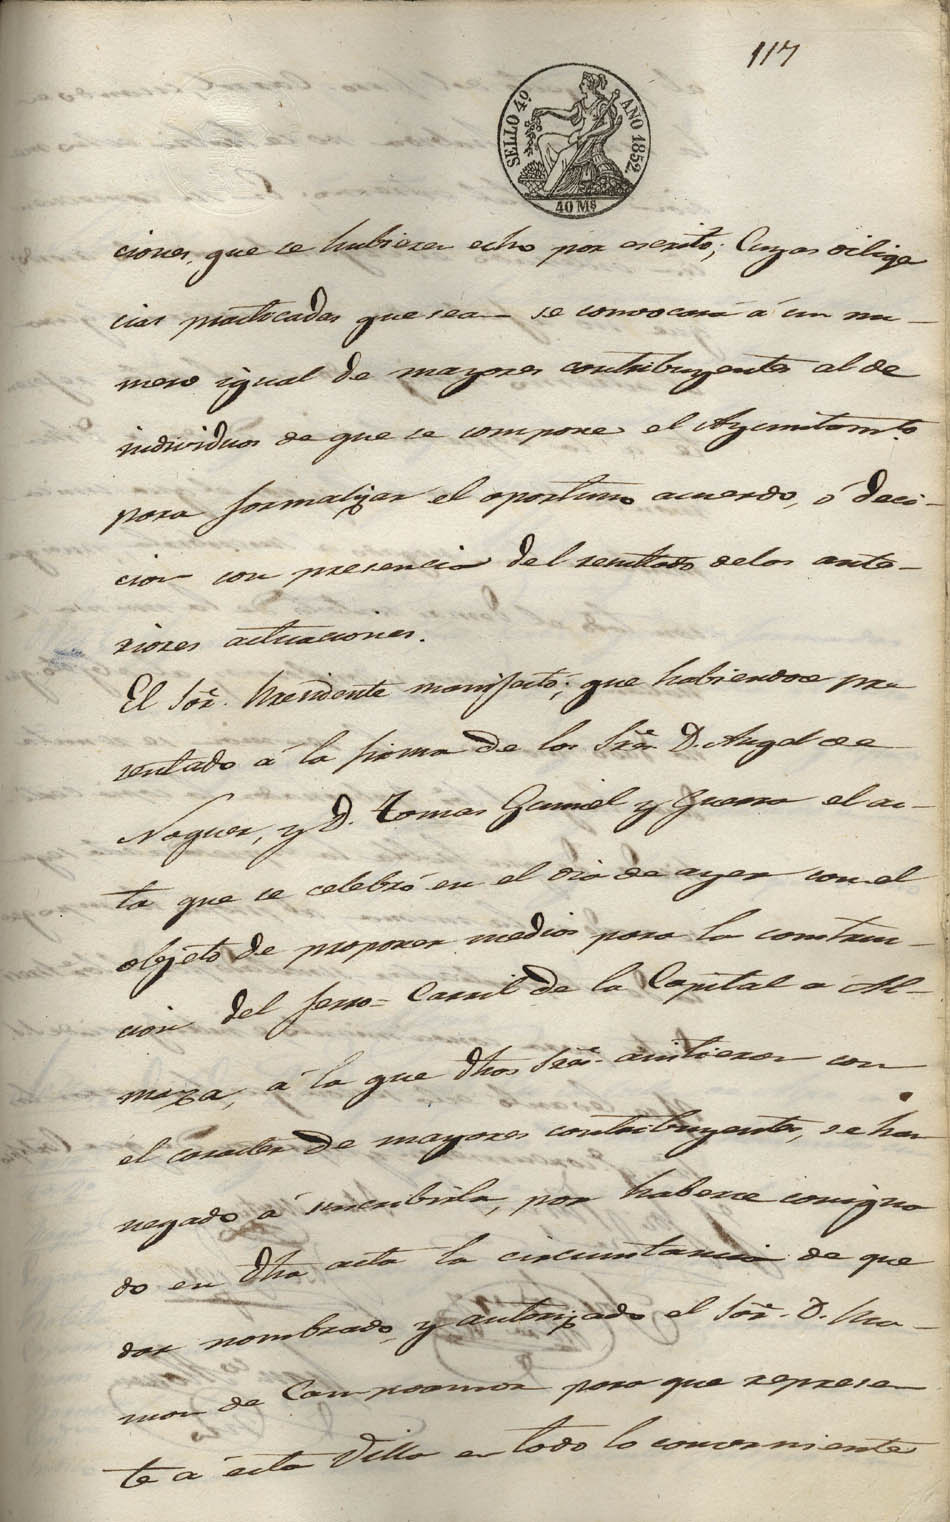 117
SELLO 4º AÑO 1852
40 Ms
ciones, que se hubieren echo por escrito; Cuyas dilige
cias practicadas que sean se convocará á un nu-
mero igual de mayores contribuyentes al de
individuos de que se compone el Ayuntamto.
para formalizar el oportuno acuerdo, ó deci-
cion con presencia del resultado delas ante-
riores actuaciones.
El Sor. Presidente manifestó; que habiendose pre
sentado á la firma de los Sres. D. Angel de
Noguer, y D. Tomas Gamiel y Guerra el ac-
ta que se celebró en el dia de ayer con el
objeto de proponer medios para la construc-
cion del ferro=Carril de la Capital a Al-
mazsa, á la que dhos Sres. asistieron con
el caracter de mayores contribuyentes, se han
negado á suscribirla, por haberse consigna
do en dha acta la circunstancia de que
dar nombrado, y autorizado el Sor. D. Ra-
mon de Campoamor para que represen
te a ésta Villa en todo lo concerniente